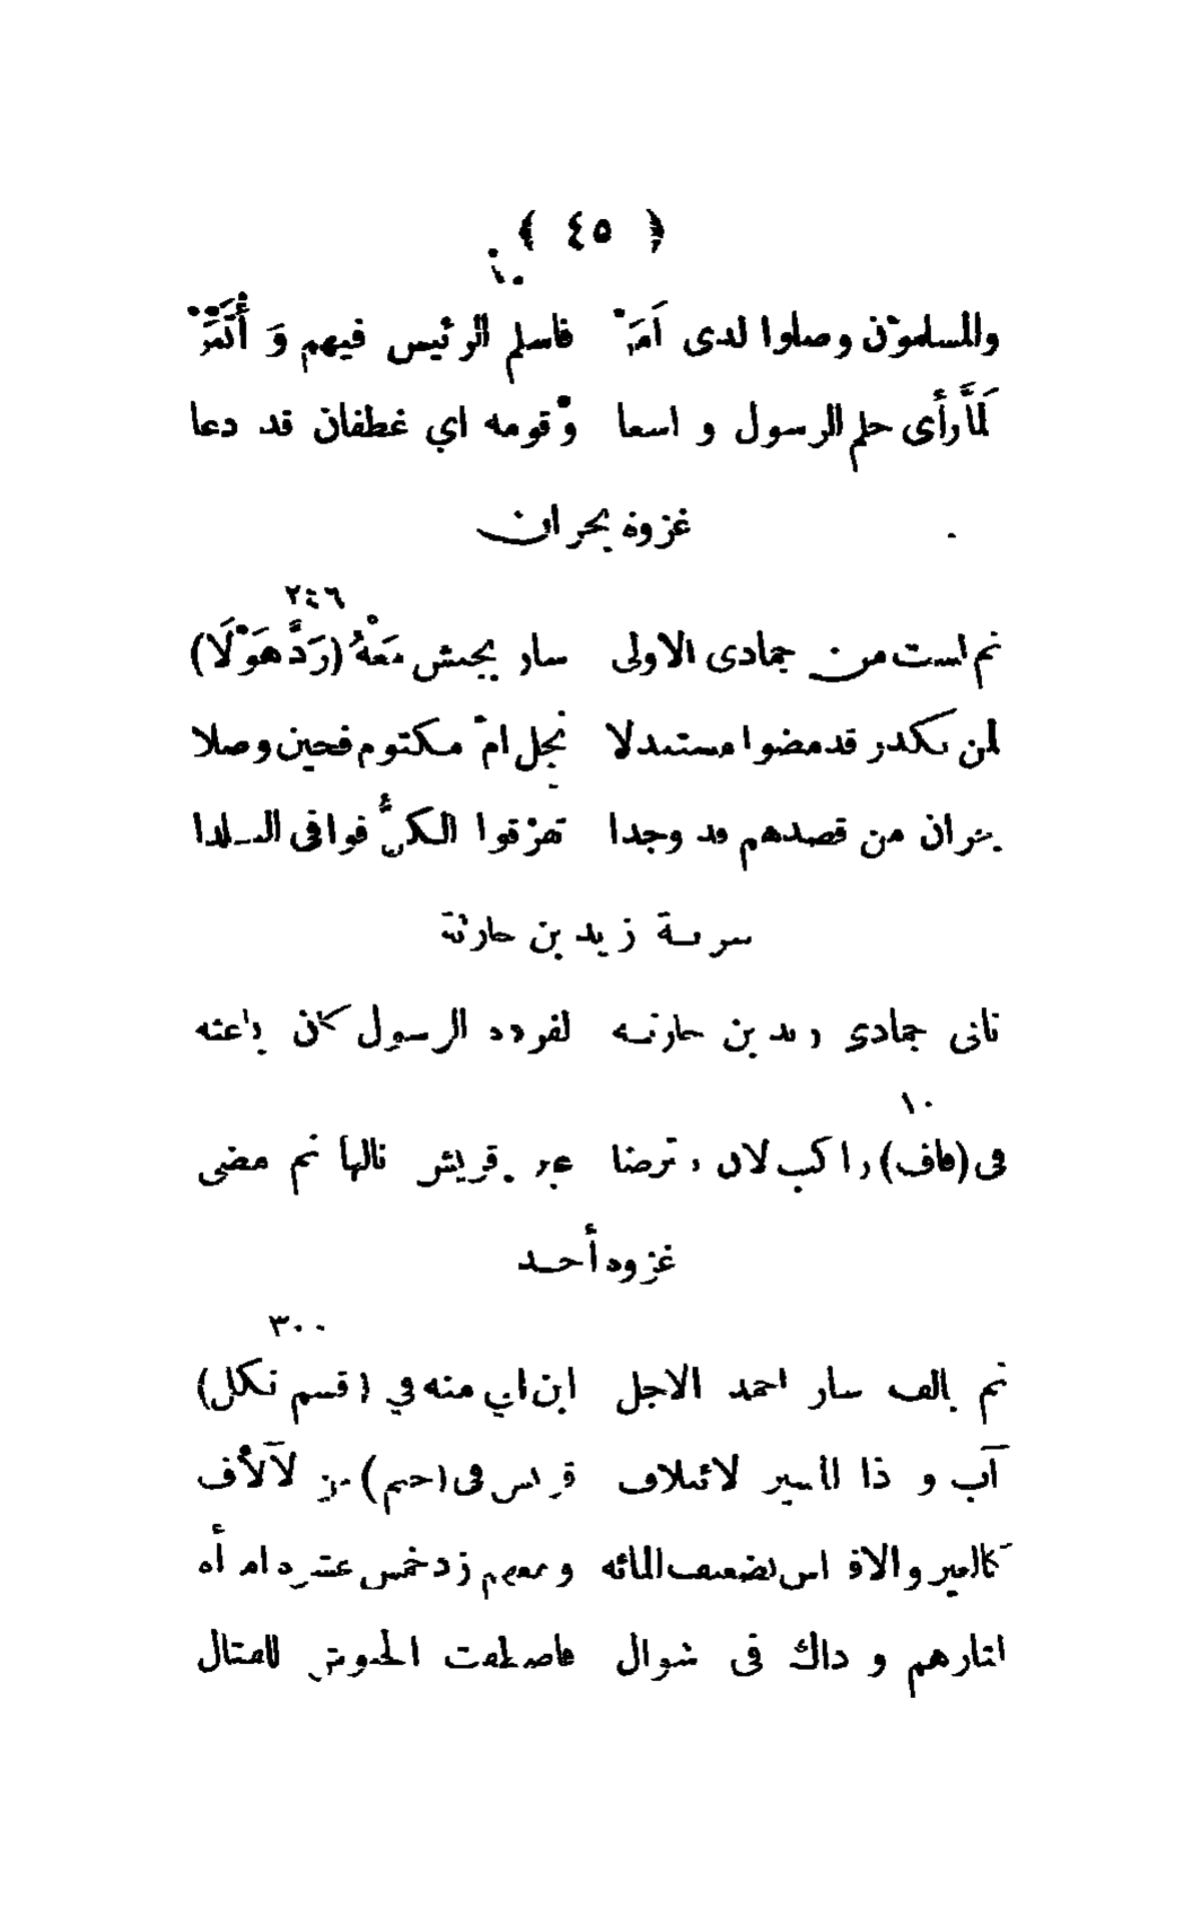 ﴿ ٤٥ ﴾
والمسلمون وصلوا لدى أمر فاسلم الرئيس فيهم و أنمر
لما رأى حلم الرسول و اسعا وقومه اي غطفان قد دعا
غزوة بحران
٢٤٦
ثم لست من جمادى الاولى سار بجيش معه (رد هولا)
لمن بكدر قد مضوا مستبدلا نجل ام مكتوم فحين وصلا
بحران من قصدهم قد وجدا تفرقوا الكل فوافى البلدا
سرية زيد بن حارثة
ثانى جمادى زيد بن حارثه لقردة الرسول كان باعثه
١٠
فى (قاف) راكب لان ترضا عير قريش نالها ثم مضى
غزوة أحد
٣٠٠
ثم بالف سار احمد الاجل ابن ابي منه في (قسم نكل)
آب و ذا المسير لائتلاف قريش فى (جيم) من لآلاف
كالعير والافراس بضعف المائه ومعهم زد خمس عشرة امرأه
لثارهم و ذاك فى شوال فاصطفت الجيوش للقتال